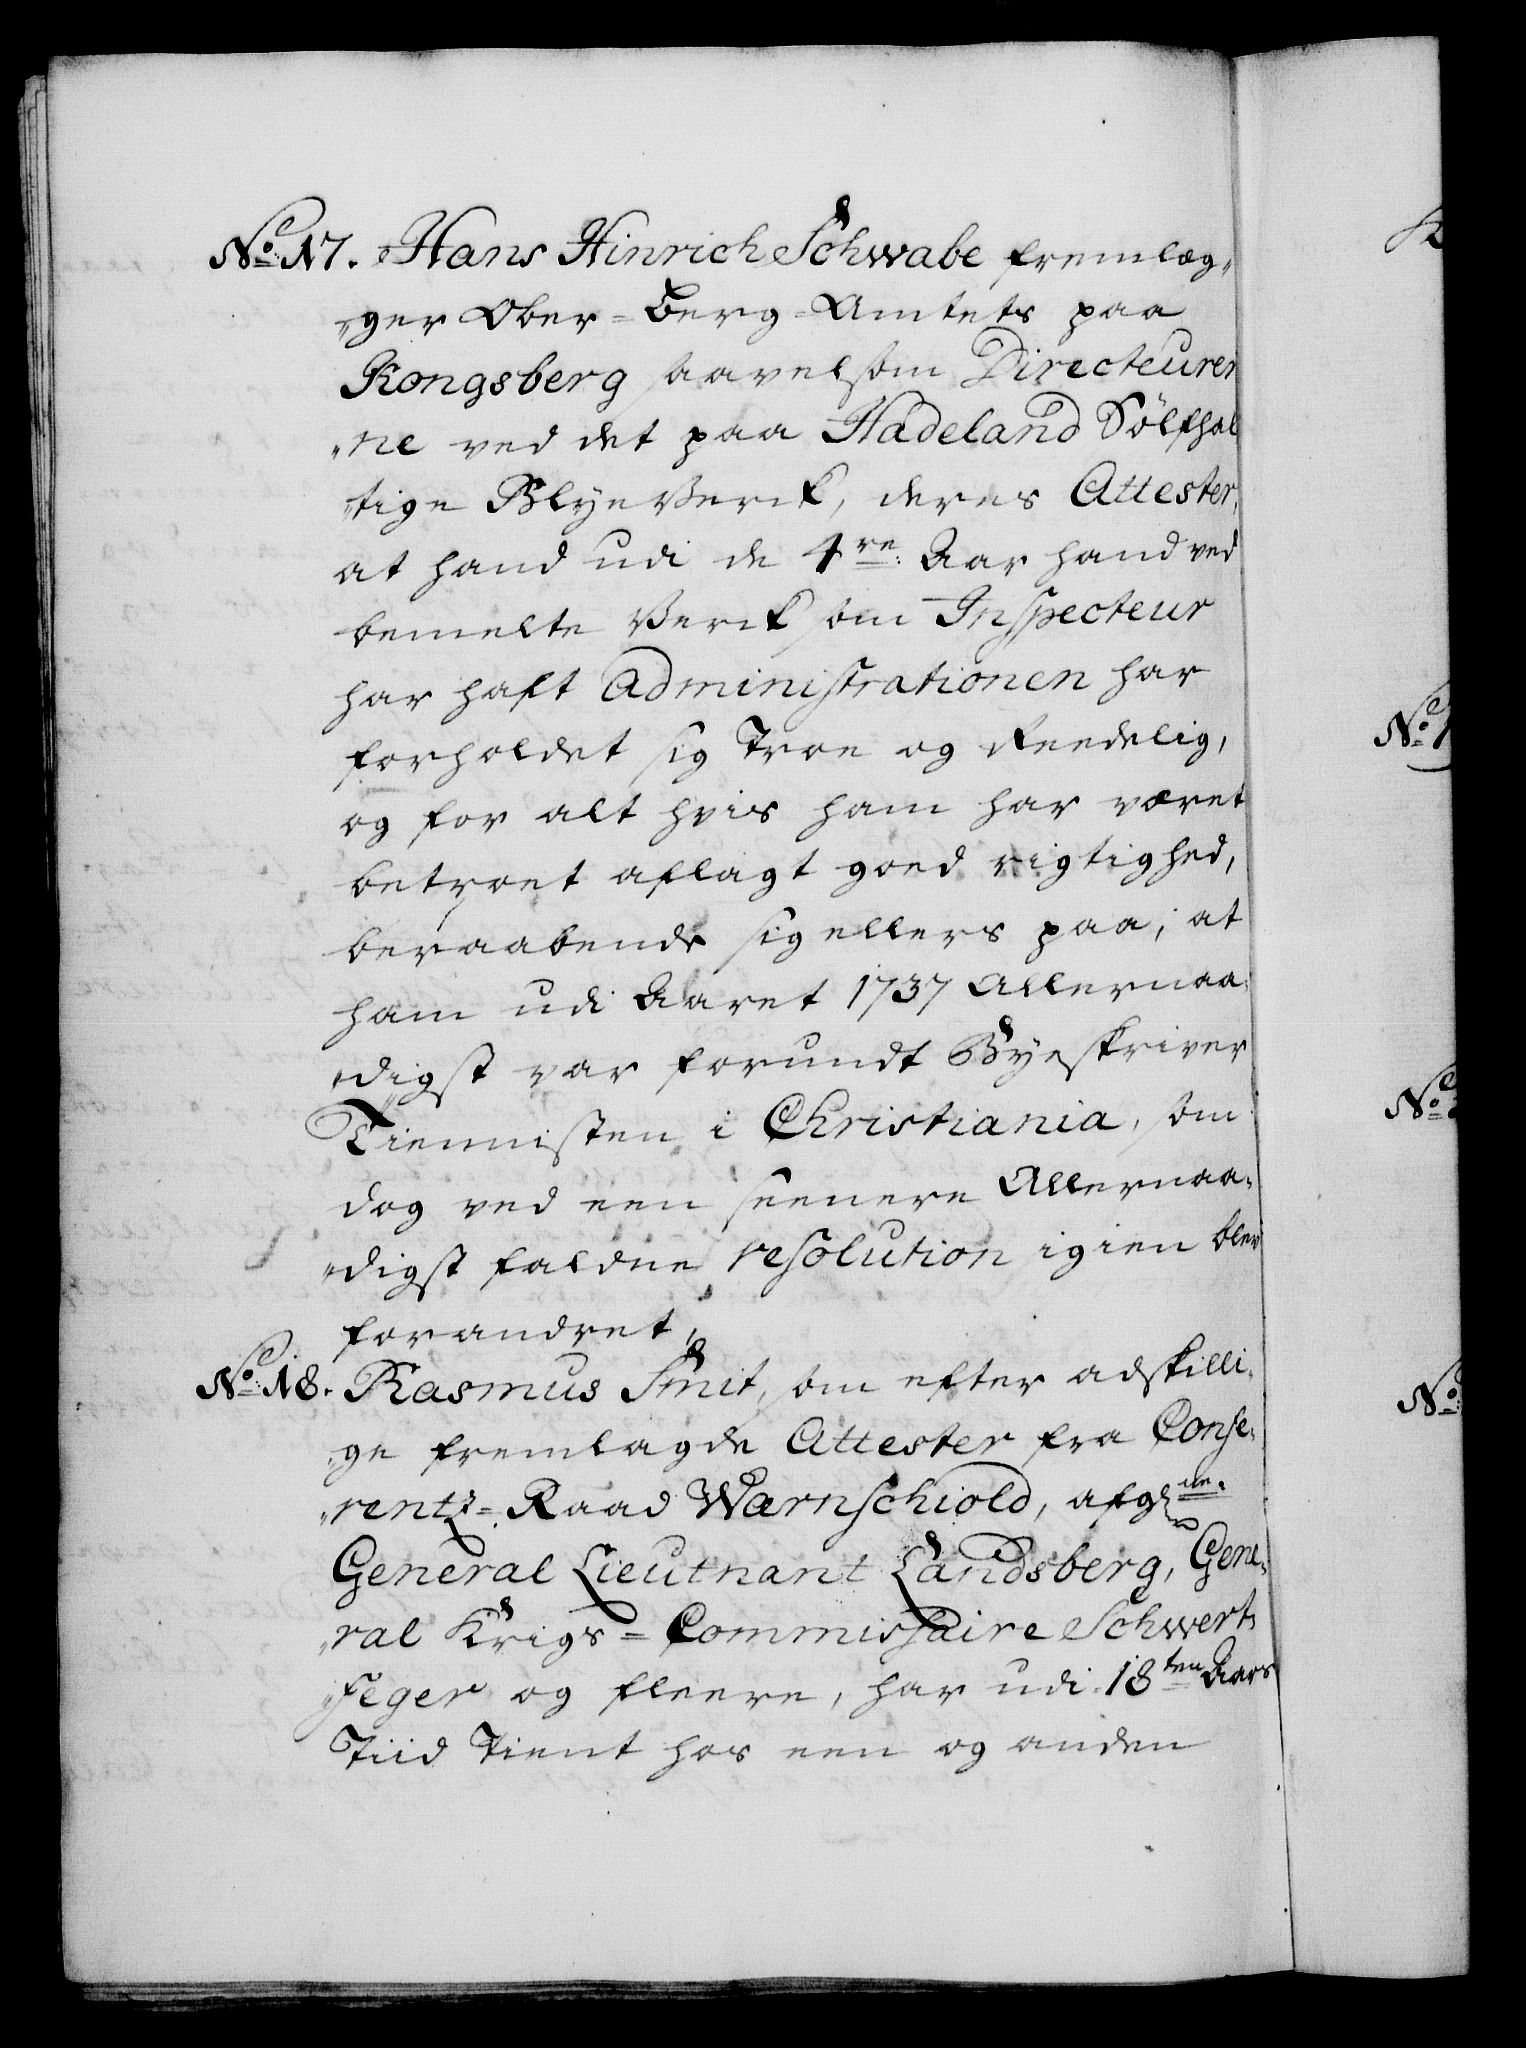 No: 17. Hans Hinrich Schwabe fremlæg„
„ger Ober=Berg=Amtets paa
Kongsberg saavelsom Directeurer
„ne ved det paa Hadeland Sölfhol
„tige Blye Verck, deres Attester,
at hand udi de 4re: Aar hand ved
bemelte Verck som Inspecteur
har haft Administrationen har
forholdet sig Troe og Reedelig,
og for alt hvis ham har været
betroet aflagt goed rigtighed,
beraabende sig ellers paa, at
ham udi Aaret 1737 Allernaa„
„digst var forundt Byeskriver
Tiennisten i Christiania, som
dog ved een seenere Allernaa„
„digst faldne resolution igien blev
forandret,
No: 18. Rasmus Smit, som efter adskilli„
„ge fremlagde Attester fra Confe„
„rentz=Raad Wærnschiold, afgl ne:
General Lieutnant Landsberg, Gene„
„ral Krigs=Commissaire Schwert„
„feger og fleere, har udi 18ten Aars
Tiid Tient hos een og anden
No: 1
No:
No: